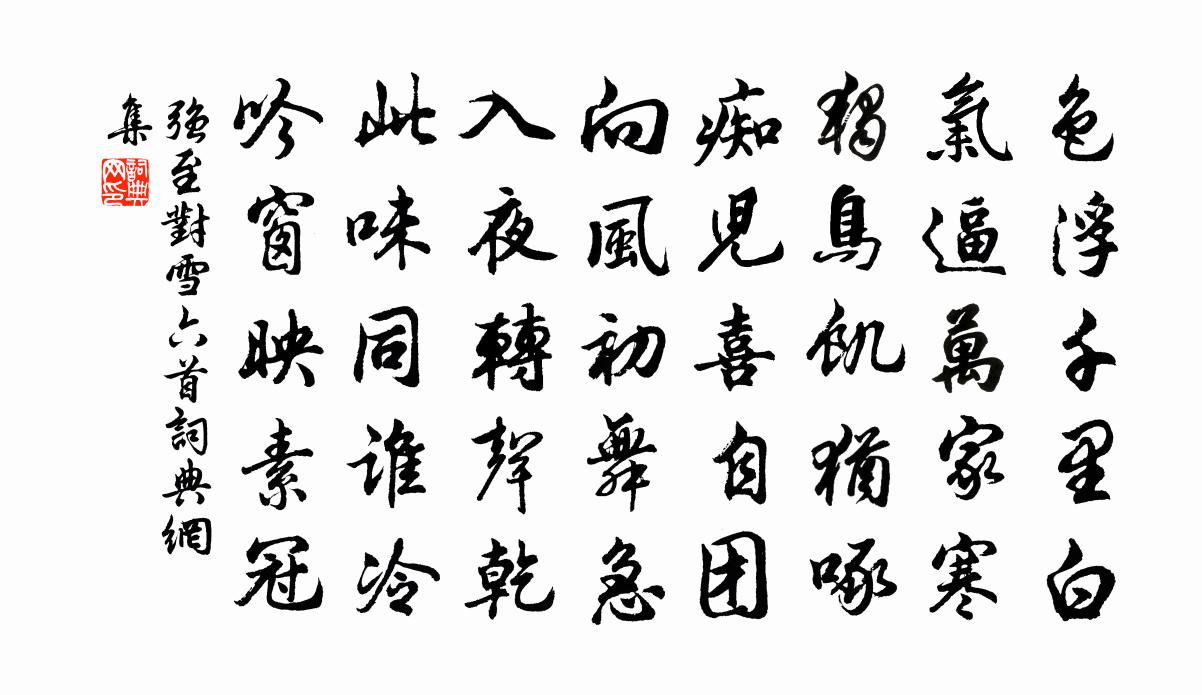 色浮千里白
氣逼萬家寒
獨鳥飢猶啄
痴兒喜自团
向風初舞急
入夜轉聲乾
此味同誰冷
吟窗映素冠
强至對雪六首詞典網
集
詞典网印